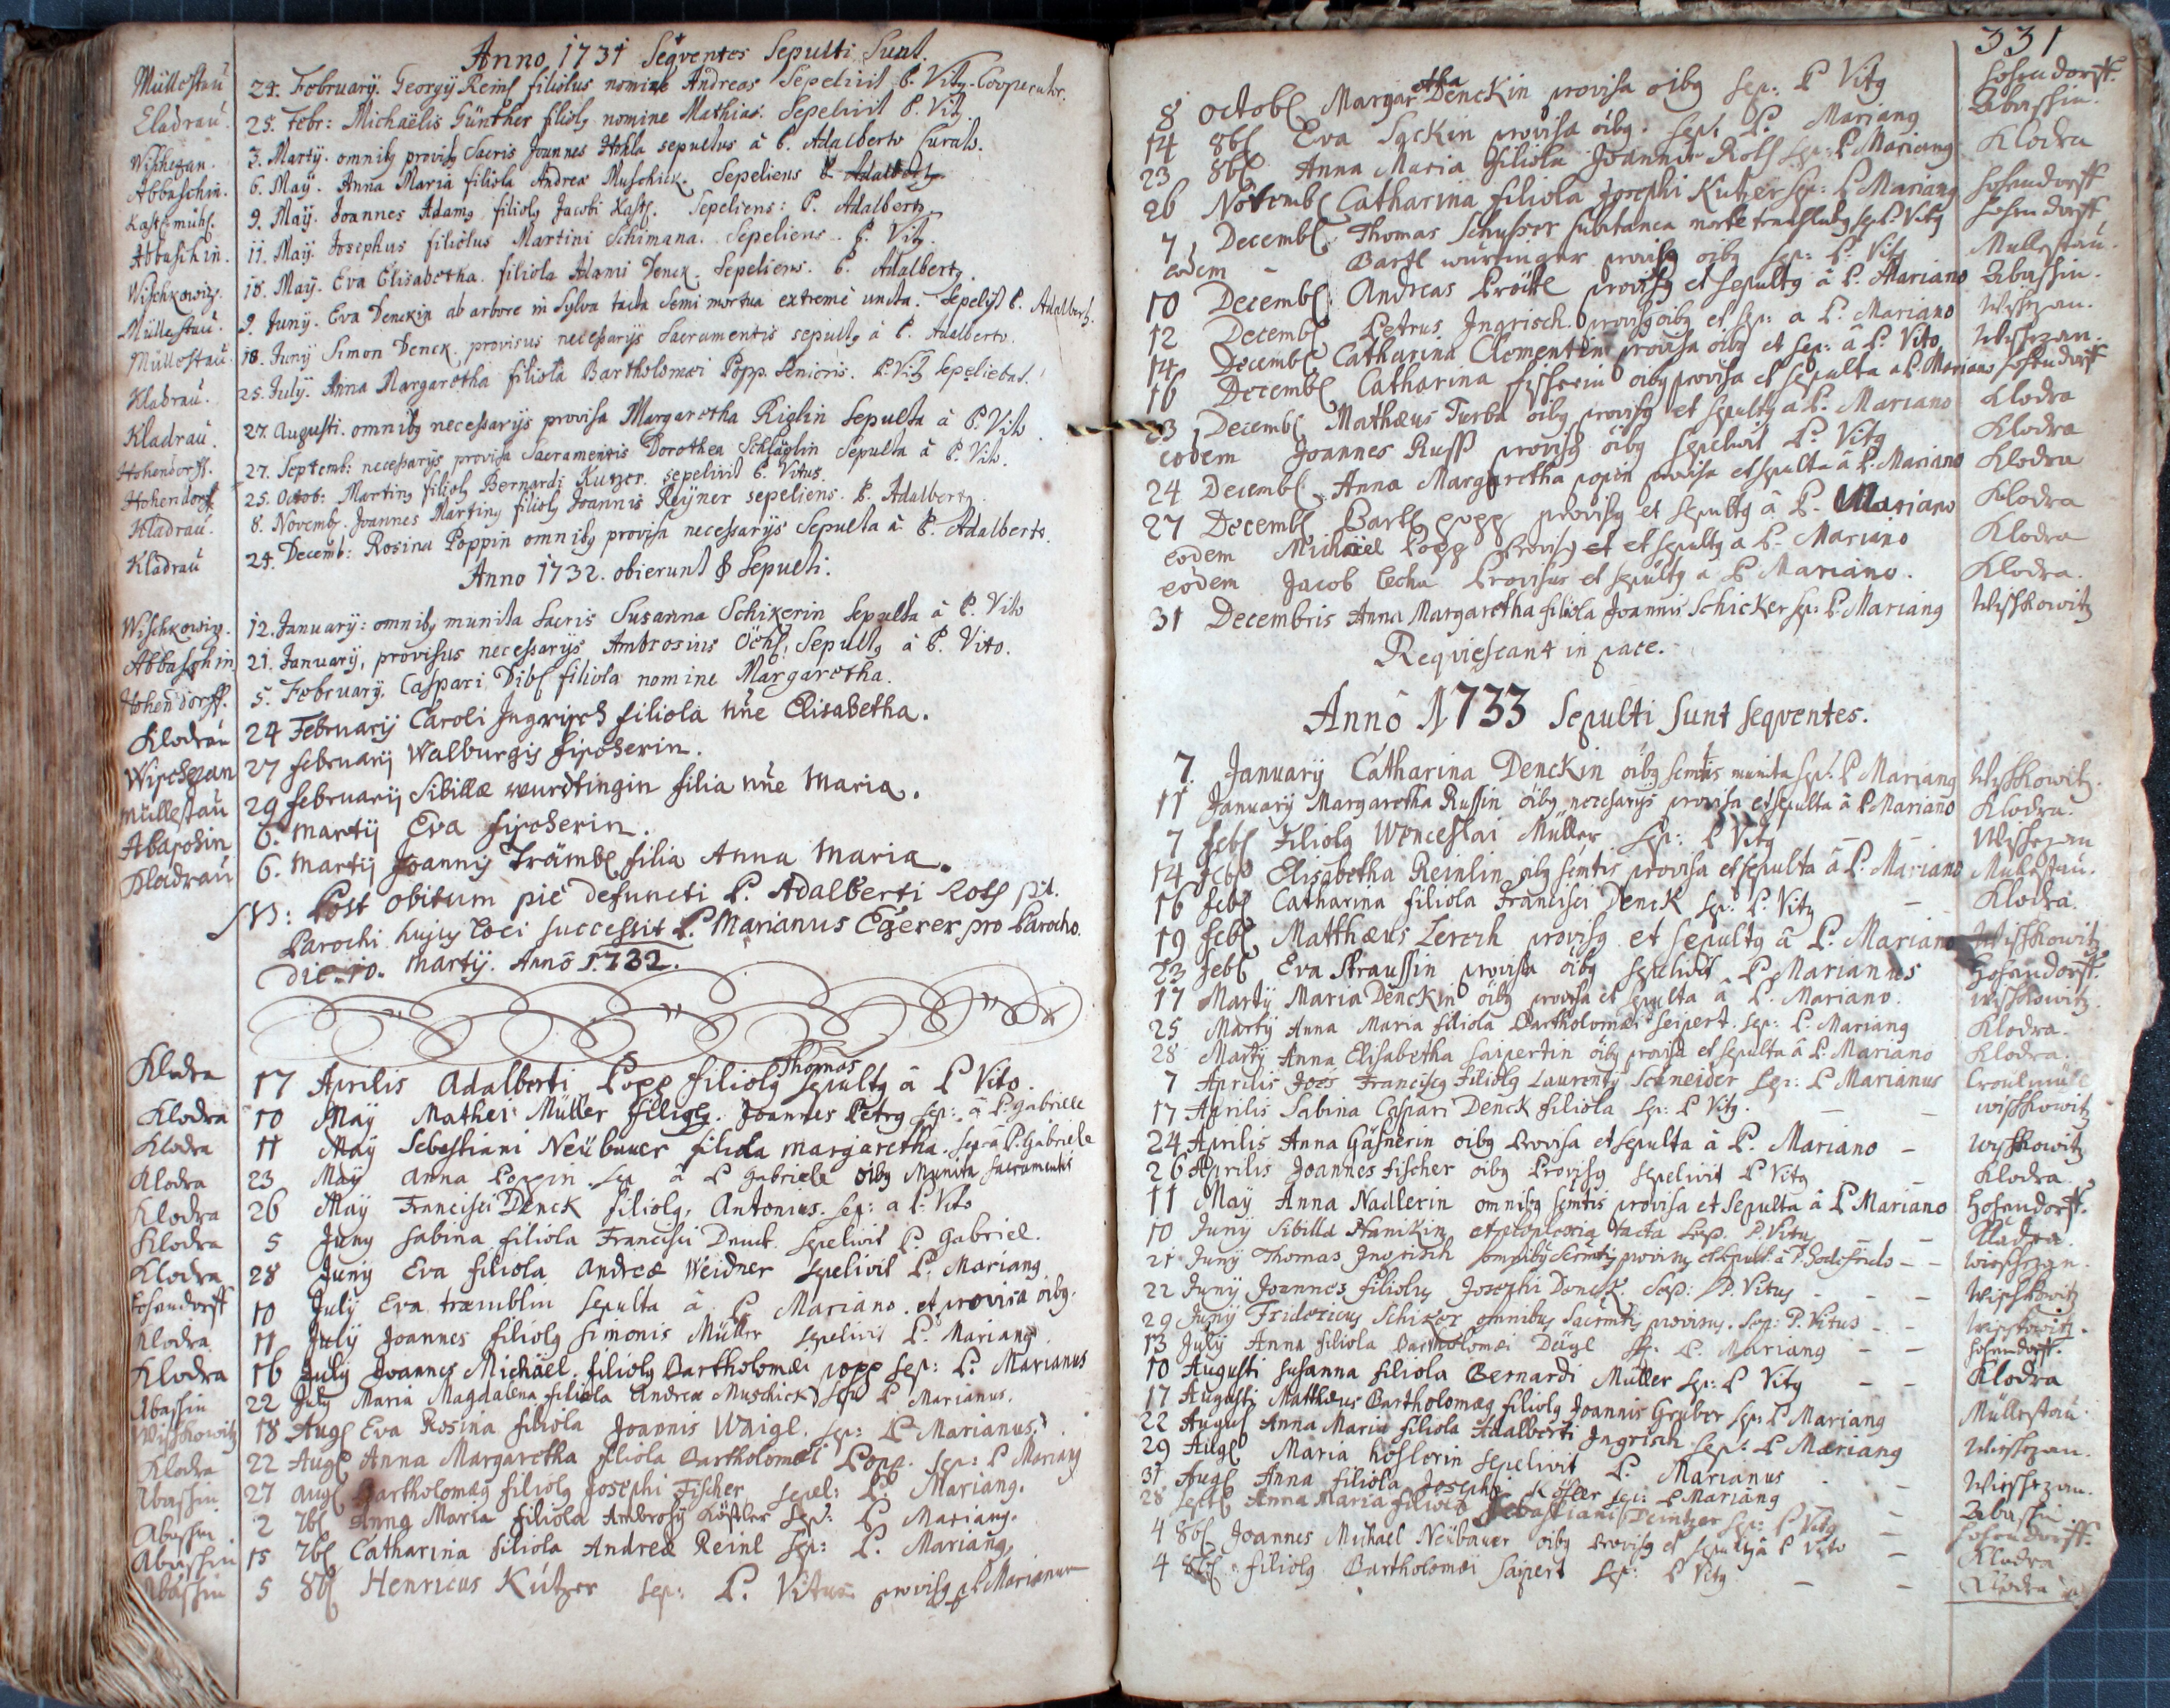 Anno 1731 Seqventes Sepulti Sunt.
Müllestau 24. February. Georgij Reinl filiolus nomine Andreas Sepelivit P. Vitg. Cooperator.
Cladrau. 25. Febr: Michaëlis Günther filiolg nomine Mathias. Sepelivit P. Vitg.
Wischezan. 3. Martÿ. omnibg provisg Sacris Joannes Hohla sepultus à P. Adalberto Curato.
Abbaschin. 6. Maÿ. Anna Maria filiola Andreæ Muschick. Sepeliens P. Adalbertg.
9. Maÿ. Joannes Adamg filiolg Jacobi Sepeliens: P. Adalbertg
Abbaschin. 11. Maÿ. Josephus filiolus Martini Schimana. Sepeliens P. Vitg.
Wischkowitz. 18. Maÿ. Eva Elisabetha filiola Adami Denck. Sepeliens. P. Adalbertg.
Müllestau. 9. Junÿ. Eva Denckin ab arbore in Sylva tacta Semi mortua extremè uncta. Sepelijt P. Adalbertg.
Müllestau. 18. Junÿ Simon Denck. provisus necessarijs Sacramentis sepultg à P. Adalberto.
Kladrau. 25. July. Anna Margaretha filiola Bartholomæi Popp. Senioris. P. Vitg Sepeliebat.
Kladrau. 27. Augusti. omnibg necessarijs provisa Margaretha Riglin Sepulta à P. Vito
Hohendorff. 27. Septemb: necessarijs provisa Sacramentis Dorothea Schläglin Sepulta à P. Vito.
Hohendorff 25. Octob: Marting filiolg Bernardi Kutzer. sepelivit P. Vitus.
Kladrau. 8. Novembg. Joannes Marting filiolg Joannis Reÿner sepeliens. P. Adalbertg.
Kladrau 24. Decemb: Rosina Poppin omnibg provisa necessarijs Sepulta à P. Adalberto.
Anno 1732. obierunt & Sepulti.
Wischkowitz. 12. January: omnibg munita Sacris Susanna Schikerin Sepulta à P. Vito
Abbaschin 21. January, provisus necessarijs Ambrosius Öchsl, Sepultg à P. Vito.
Hohendorff. 5. February. Caspari Dibl filiola nomine Margaretha.
Klodrau 24 Februarij Caroli Jngrisch filiola nne Elisabetha.
Wischezan 27 februarij Walburgis fischerin.
Müllestau 29 februarij Sibillæ wurdtingin filia nne Maria.
Abaschin 6. Martij Eva fischerin.
Kladrau 6. Martij Joannis Trämbl filia Anna Maria.
NB: Post obitum piè defuncti P. Adalberti Roth pit.
Parochi hujus loci successit P. Marianus Egerer pro Parocho.
Die. 10. Martij. Annô 1732.
Thomas
Klodra 17 Aprilis Adalberti Popp filiolg Sepultg à P Vito.
Klodra 10 May Mathei Müller filiolg. Joannes Petrg sep: à P: Gabriele
Klodra 11 May Sebastiani Neübauer filiola Margaretha. sep: à P. Gabriele
Klodra 23 Maÿ Anna Poppin. sep à P Gabriele oibg Munita Sacramentis
Klodra 26 Maÿ Francisci Denck filiolg, Antonius. sep: a P: Vito
Klodra 5 Juny Sabina filiola Francisci Denck. sepelivit P. Gabriel.
Klodra 28 Junÿ Eva filiola Andreæ Weidner sepelivit P: Mariang
Hohendorff 10 July Eva træmblin sepulta à P Mariano. et provisa oibg.
Klodra 11 July Joannes filiolg Simonis Müller sepelivit P. Mariang.
Klodra 16 July Joannes Michäel filiolg Bartholomæi popp sep: P. Marianus
Abaschin 22 July Maria Magdalena filiola Andreæ Muschick sep P Marianus.
Wischkowitz 18 Augl Eva Rosina filiola Joannis Waigl. sep: P Marianus.
Klodra 22 Augl Anna Margaretha filiola Bartholomei Popp. sep: P Mariang
Abaschin 27 Augl Bartholomæg filiolg Josephi Fischer sepel: P. Mariang.
Abaschin 2 7bl Anna Maria filiola Ambrosÿ Köstler Sep: P. Mariang.
Abaschin 15 7bl Catharina filiola Andreæ Reinl sep: P. Mariang,
Abaschin 5 8bl Henricus Kutzer sep: P. Vitus provisg P. Mariano
331
etha
8 Octobl Margar Denckin provisa oibg sep: P Vitg Hohendorff.
14 8bl Eva Säckin provisa öibg. sep: P. Mariang Abaschin.
23 8bl Anna Maria filiola Joannis Roth sep: P Mariang Klodra
26 Novembl Catharina filiola Josephi Kutzer sep: P Mariang Hohendorff
7 Decembl Thomas Schusser subitanea morte sep P Vitg Hohendorff
eodem - Bartl wurtinger provisg oibg sep: P. Vitg Mullestau.
10 Decembl Andreas Pröckl provisg et sepultg à P. Mariano Abaschin.
12 Decembl Petrus Jngrisch. provisg oibg et sep: a P. Mariano Wischezan.
14 Decembl Catharina Clementin provisa oibg et sep: â P. Vito Wischezan.
16 Decembl Catharina fischerin oibg provisa et sepulta a P. Mariano Hohendorff
23 Decembl Mathæus Turba oibg provisg et sepultg a P. Mariano Klodra
eodem Joannes Russ provisg öibg sepelivit P. Vitg Klodra
24 Decembl Anna Margaretha popin provisa et sepulta â P. Mariano Klodra
27 Decembl Bartl popp provisg et sepultg â P. Mariano Klodra
eodem Michäel Popp Provisg et et sepultg a P. Mariano Klodra
eodem Jacob Cecha Provisus et sepultg a P Mariano. Klodra.
31 Decembris Anna Margaretha filiola Joannis Schicker sep: P. Mariang Wischkowitz
Reqviescant in pace.
Annô 1733 Sepulti Sunt seqventes.
7. January Catharina Denckin öibg semtis munita sep: P Mariang Wischkowitz.
11 January Margaretha Russin öibg necessarijs provisa et sepulta â P Mariano Klodra.
7 febl Filiolg Wenceslai Müller sep: P Vitg - - Wischezan
14 febl Elisabetha Reinlin oibg semtis provisa et sepulta â P. Mariano Mullestau.
16 febl Catharina filiola Francisci Denck sep: P. Vitg - Klodra.
19 febl Matthæus Lerch provisg et sepultg â P. Mariano Wischkowitz
23 febl Eva Straussin provisa oibg sepelivit P Mariannus Hohendorff.
17 Martÿ Maria Denckin öibg provisa et sepulta â P. Mariano. Wischkowitz.
25 Martÿ Anna Maria filiola Bartholomæi Seipert. sep: P. Mariang Klodra.
28 Martÿ Anna Elisabetha Saipertin öibg provisa et sepulta â P. Mariano Klodra.
7 Aprilis Joes Franciscg Filiolg Laurentÿ Schneider sep: P Marianus
17 Aprilis Sabina Caspari Denck filiola sep: P Vitg. - - Wischkowitz
24 Aprilis Anna Gäsnerin oibg Provisa et sepulta â P. Mariano - Wischkowitz
26 Aprilis Joannes Fischer oibg Provisg sepelivit P Vitg - Klodra.
11 May Anna Nadlerin omnibg semtis provisa et sepulta â P Mariano Hohendorff.
10 Junÿ Sibilla Hanikin apoplexia tacta Sep. P. Vitus - - Kladra.
21 Junÿ Thomas Jngrisch omnibg Scrmtis provisus et sepult. à P. Godefrido - - Wischezan.
22 Junÿ Joannes filiolus Josephi Denck. Sep: P. Vitus - - - Wischkowitz
29 Junÿ Fridericus Schiker omnibus Sacrmtis provisus. Sep: P. Vitus - - Wischkowitz.
13 July Anna filiola Bartholomæi Dägl sep: P. Mariang - - Hohendorff.
10 Augusti Susanna filiola Bernardi Müller sep: P Vitg - - Klodra
17 Augusti Matthæus Bartholomæg filiolg Joannis Gruber sep: P Mariang Müllestau
22 Augus Anna Maria filiola Adalberti Jngrisch sep: P Mariang Wischezan.
29 Augl Maria höflerin sepelivit P. Marianus - Wischezan.
31 Augl Anna filiola Josephi sep: P Mariang Abaschin
28 Septbl Anna Maria filiola Sebastiani Deintzer sep: P Vitg - Hohendorff.
4 8bl Joannes Michael Neübauer oibg provisg et sepultg â P Vito - Klodra
4 8bl filiolg Bartholomæi Saipert sep: P Vitg - - Klodra